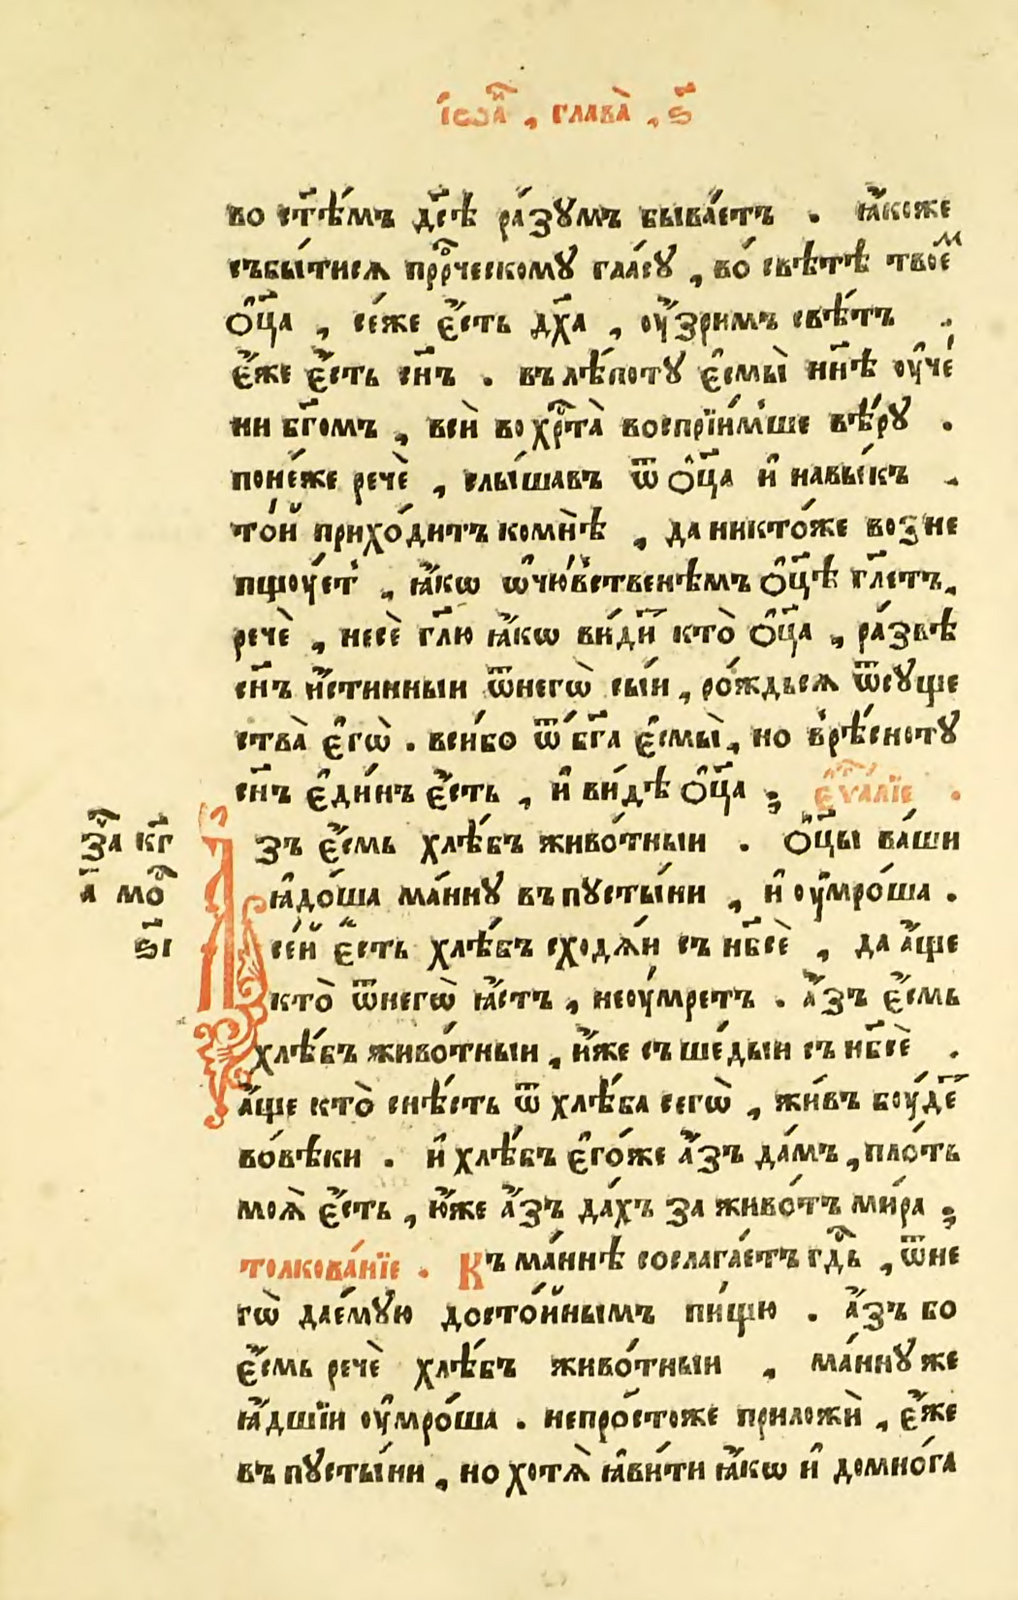 і҆ѡа҃н , глава̀ , ѕ҃
во ст҃ѣ́мъ дс҃ѣ ра́зꙋмъ быва́етъ . ꙗ҆́коже
събы́тися прⷪ҇рческомꙋ гла́сꙋ , во́ свѣтѣ твоеⷨ
ѻ҆ц҃а , се́же є҆́сть дх҃а , оу҆́зримъ свѣ́тъ .
є҆́же є҆́сть сн҃ъ . въ лѣ́потꙋ є҆смы̀ нн҃ѣ оу҆че́
ни бг҃омъ , всѝ во хрⷭ҇та̀ воспрїи́мше вѣ́рꙋ .
поне́же речѐ , слы́шавъ ѿ ѻ҆ц҃а и҆ навы́къ .
то́й прихо́дитъ комнѣ̀ , да никто́же возне
пщоуе́т , ꙗ҆́кѡ ѡ҆чю́вственѣмъ ѻ҆ц҃ѣ гл҃етъ.
речѐ , несѐ гл҃ю ꙗ҆́кѡ ви́дⷩи кто̀ ѻ҆ц҃а , ра́звѣ
сн҃ъ и҆́стинныи ѿнегѡ̀ сы́и , ро́ждься ѿсꙋще
ства̀ є҆гѡ̀ . всѝбо ѿ бг҃а є҆смы̀ , но врѣ́снотꙋ
сн҃ъ є҆ди́нъ є҆́сть , и҆ ви́дѣ ѻ҆ц҃а ; є҆ѵⷢ҇алїе .
Азъ є҆́смь хлѣ́бъ живо́тныи . ѻ҆ц҃ы ва́ши
ꙗ҆до́ша ма́ннꙋ въ пꙋсты́ни , и҆ оу҆мро́ша .
се́й є҆́сть хлѣ́бъ сходѧ́и съ нб҃сѐ , да а҆́ще
кто̀ ѿнегѡ̀ ꙗ҆́стъ , неоу́мретъ . а҆́зъ є҆́смь
хлѣ́бъ живо́тныи , и҆́же съше́дыи съ нб҃сѐ .
а҆́ще кто̀ снѣ́сть ѿ хлѣ́ба сегѡ̀ , жи́въ боу́деⷮ
во́вѣки . и҆ хлѣ́бъ є҆го́же а҆́зъ да́мъ , пло́ть
моѧ̀ є҆́сть , ю҆́же а҆́зъ да́хъ за живо́тъ ми́ра ;
толкова́нїе . Къ ма́ннѣ сослага́етъ гдⷭ҇ь , ѿне
гѡ̀ дае́мꙋю досто́йнымъ пи́щю . а҆́зъ бо
є҆́смь речѐ хлѣ́бъ живо́тныи , ма́ннꙋ же
ꙗ҆́дшїи оу҆мро́ша . непро́стоже приложѝ , є҆́же
въ пꙋсты́ни , но хотѧ̀ ꙗ҆ви́ти ꙗ҆́кѡ и҆ домно́га